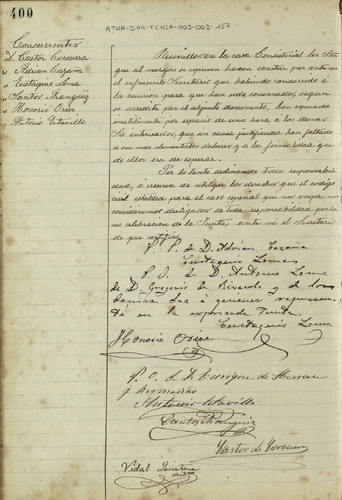 400
ATHA-DAH-FCUSA-003-003-157
Concurrentes
D. Castor Corcuera
" Adrian
" Eustaquio Loma
" Santos
" Honorio
" Antonio
Reunidos en la casa Consistorial los
que al margen se expresan hacen constar por ante mi
el infrascrito Secretario que habiendo concurrido á
la reunion para que han sido convocados, segun
se acredita por el adjunto documento, han esperado
inutilmente por espacio de una hora á los demas
que sin causa justificada han faltado
á sus mas elementales deberes y á la formalidad que
de ellos era de esperar.
Por lo tanto declinando toda responsabili
dad, á reserva de utilizar los derechos que el código
civil establece para el caso especial que nos ocupa, no
consideramos de toda responsabilidad, por la
no celebracion de la Junta, ante mi el Secretario
de que certifico
P. P. de D. Adrian
Eustaquio Loma
P. O. de D. Antonio Loma
de D. Gregorio de y de los
á quienes represen
to en la expresada Junta.
Eustaquio Loma
Honorio
P. O. de D. Enrique de
y hermanas
Antonio
Santos
Castor de Corcuera
Vidal